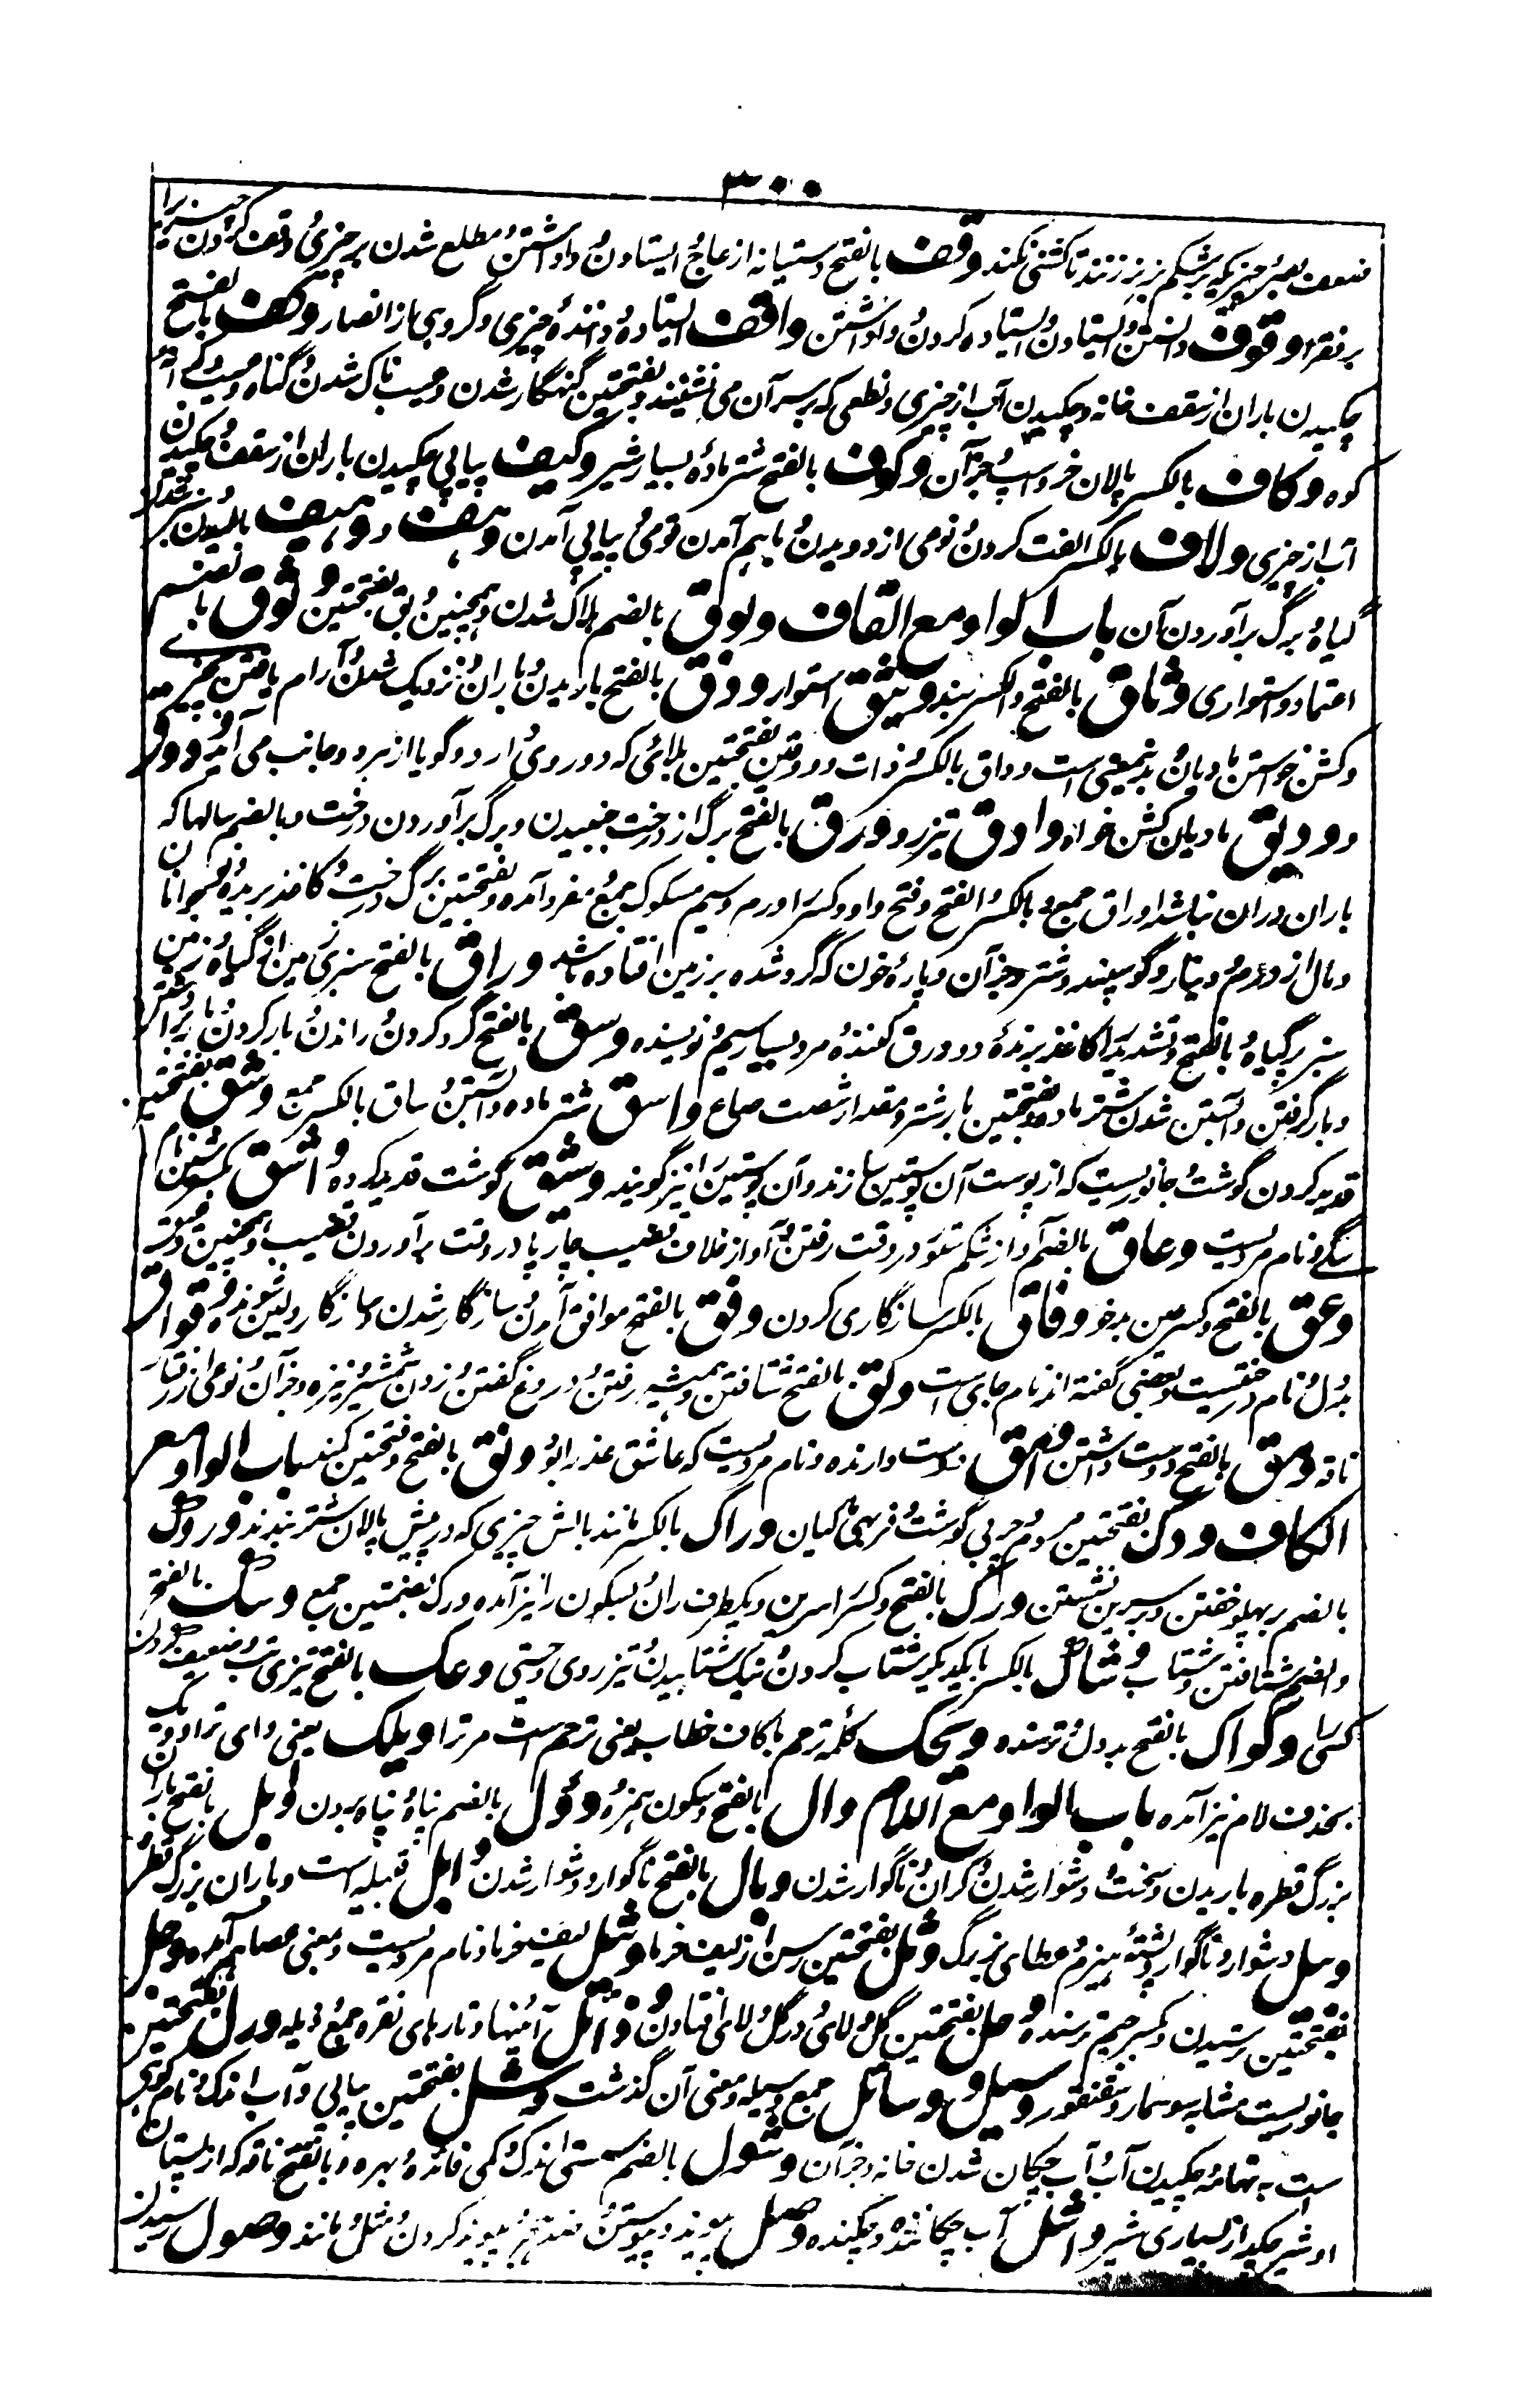 ۳۰۰
ضعف بصر و چیزیکه بر شکم بز بر بندند تا کشنی نکند وقف بالفتح دستیانه از عاج و ایستادن و واداشتن و مطلع شدن بر چیزی و وقف کردن چیزیرا
بر فقرا وقوف دانستن و ایستادن و ایستاده کردن و واداشتن واقف ایستاده و دانندهٔ چیزی و گروهی از انصار وکف بالفتح
چکیدن باران از سقف خانه و چکیدن آب از چیزی و نطعی که بر سر آن می نشینند و بفتحتین گنهگار شدن و عیب ناک شدن و گناه و عیب و
کوه وکاف بالکسر پالان خر و اسپ و جز آن وکوف بالفتح شتر مادهٔ بسیار شیر وکیف پیاپی چکیدن باران از سقف و چکیدن
آب از چیزی ولاف بالکسر الفت کردن و نوعی از دویدن و باهم آمدن قومی و پیاپی آمدن وهف و وهیف بالیدن و سبز شدن
گیاه و برگ برآوردن آن باب الواو مع القاف وبوق بالضم هلاک شدن و همچنین وبق بفتحتین وثوق بالضم
اعتماد و استواری وثاق بالفتح والکسر بند وثیق استوار ودق بالفتح باریدن و باران و نزدیک شدن و آرام یافتن بچیزے
و کشن خواستن مادیان و بدینمعنی است وداق بالکسر و ذات ودقین بفتحتین بلائی که دو روی دارد و گویا از هر دو جانب می آید ودوق
و ودیق مادیان کشن خواه وادق تیز رو ورق بالفتح برگ از درخت چیدن و برگ برآوردن درخت و بالضم سالها که
باران دران نباشد اوراق جمع و بالکسر والفتح و فتح واو و کسر را درم و سیم مسکوک جمع و مفرد آمده و بفتحتین برگ درخت و کاغذ بریده و جوانان
و مال از درم و دینار و گوسپند و شتر و جز آن و پارهٔ خون که گرد شده بر زمین افتاده باشد وراق بالفتح سبزی زمین از گیاه و زمین
سبز پر گیاه و بالفتح و تشدید را کاغذ برنده و ورق کننده و مرد بسیار سیم و نویسنده وسق بالفتح گرد کردن و راندن و بار کردن و بار شتر
و بار گرفتن و آبستن شدن شتر ماده و بفتحتین بار شتر و مقدار شصت صاع واسق شتر ماده آبستن وساق بالکسر جمع وشق بفتحتین
قدید کردن گوشت و جانوریست که از پوست آن پوستین سازند و آن پوستین را نیز گویند وشیق گوشت قدید کرده واشق بکسر شین نام
سگی و نام مردیست وعاق بالضم آواز شکم ستور در وقت رفتن و آواز غلاف قضیب چارپا در وقت برآوردن قضیب و همچنین وعیق
وعق بالفتح و کسر عین بدخو وفاق بالکسر سازگاری کردن وفق بالفتح موافق آمدن و سازگار شدن و سازگار و لیس شونده وقواق
بددل و نام درختیست و بعضی گفته اند نام جای است ولق بالفتح شتافتن و همیشه رفتن و دروغ گفتن و زدن شمشیر و نیزه و جز آن و نوعی از رفتار
ناقه ومق بالفتح دوست داشتن وامق دوست دارنده و نام مردیست که عاشق عذرا بود وهق بالفتح و بفتحتین کمند باب الواو مع
الکاف ودک بفتحتین مردم چربی گوشت و فربهی ماکیان وراک بالکسر مانند بالش چیزی که در پیش پالان شتر بندند وروک
بالضم بر پهلو خفتن و بر سرین نشستن ورک بالفتح و کسر را سرین و یکطرف ران و بسکون را نیز آمده ورک بضمتین جمع وشک بالفتح
والضم شتافتن و شتاب وشاک بالکسر با یکدیگر شتاب کردن و نیک شتابیدن و تیز روی و چستی وعک بالفتح تیزی تب و ضعیف کردن
کسی را وکواک بالفتح بددل و ترسنده ویحک کلمهٔ ترحم با کاف خطاب یعنی ترحم است مر ترا ویلک یعنی وای ترا و ویک
بحذف لام نیز آمده باب الواو مع اللام وال بالفتح و سکون همزه وؤول بالضم پناه و پناه بردن وبل بالفتح باران
بزرگ قطره باریدن و سخت و دشوار شدن و گران و ناگوار شدن وبال بالفتح ناگوار و دشوار شدن وابل قبیله است و باران بزرگ قطره
وبیل دشوار و ناگوار و پشتهٔ هیزم و عطای بزرگ وثل بفتحتین رسن از لیف خرما وثیل لیف خرما و نام مردیست و بمعنی عصا هم آمده وجل
بفتحتین ترسیدن و بکسر جیم ترسنده وحل بفتحتین گل و لای و در گل و لای افتادن وذائل آئینها و تارهای نقره جمع وذیله ورل بفتحتین
جانوریست مشابه سوسمار و سقنقور وسیل و وسائل جمع وسیله و معنی آن گذشت وشل بفتحتین پیاپی و آب اندک و نام کوهی
است به تهامه و چکیدن آب و آب چکان شدن خانه و جز آن وشول بالضم سستی و اندک و کمی فائده و بهره و بالفتح ناقه که از پستان
او شیر چکد از بسیاری شیر واشل آب چکاننده و چکنده وصل پیوند و پیوستن ضد هجر و پیوند کردن و مثل و مانند وصول رسیدن